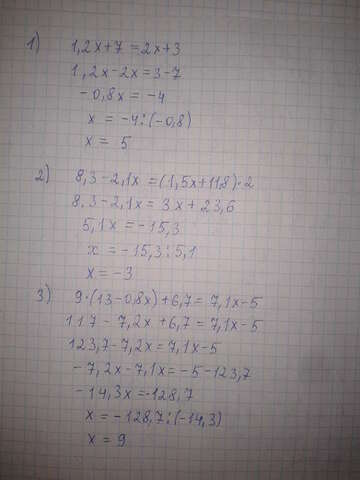 1) 1,2x+7=2x+3
1,2x-2x=3-7
-0,8x=-4
x=-4:(-0,8)
x=5
2) 8,3-2,1x=(1,5x+11,8)·2
8,3-2,1x=3x+23,6
5,1x=-15,3
x=-15,3:5,1
x=-3
3) 9·(13-0,8x)+6,7=7,1x-5
117-7,2x+6,7=7,1x-5
123,7-7,2x=7,1x-5
-7,2x-7,1x=-5-123,7
-14,3x=-128,7
x=-128,7:(-14,3)
x=9